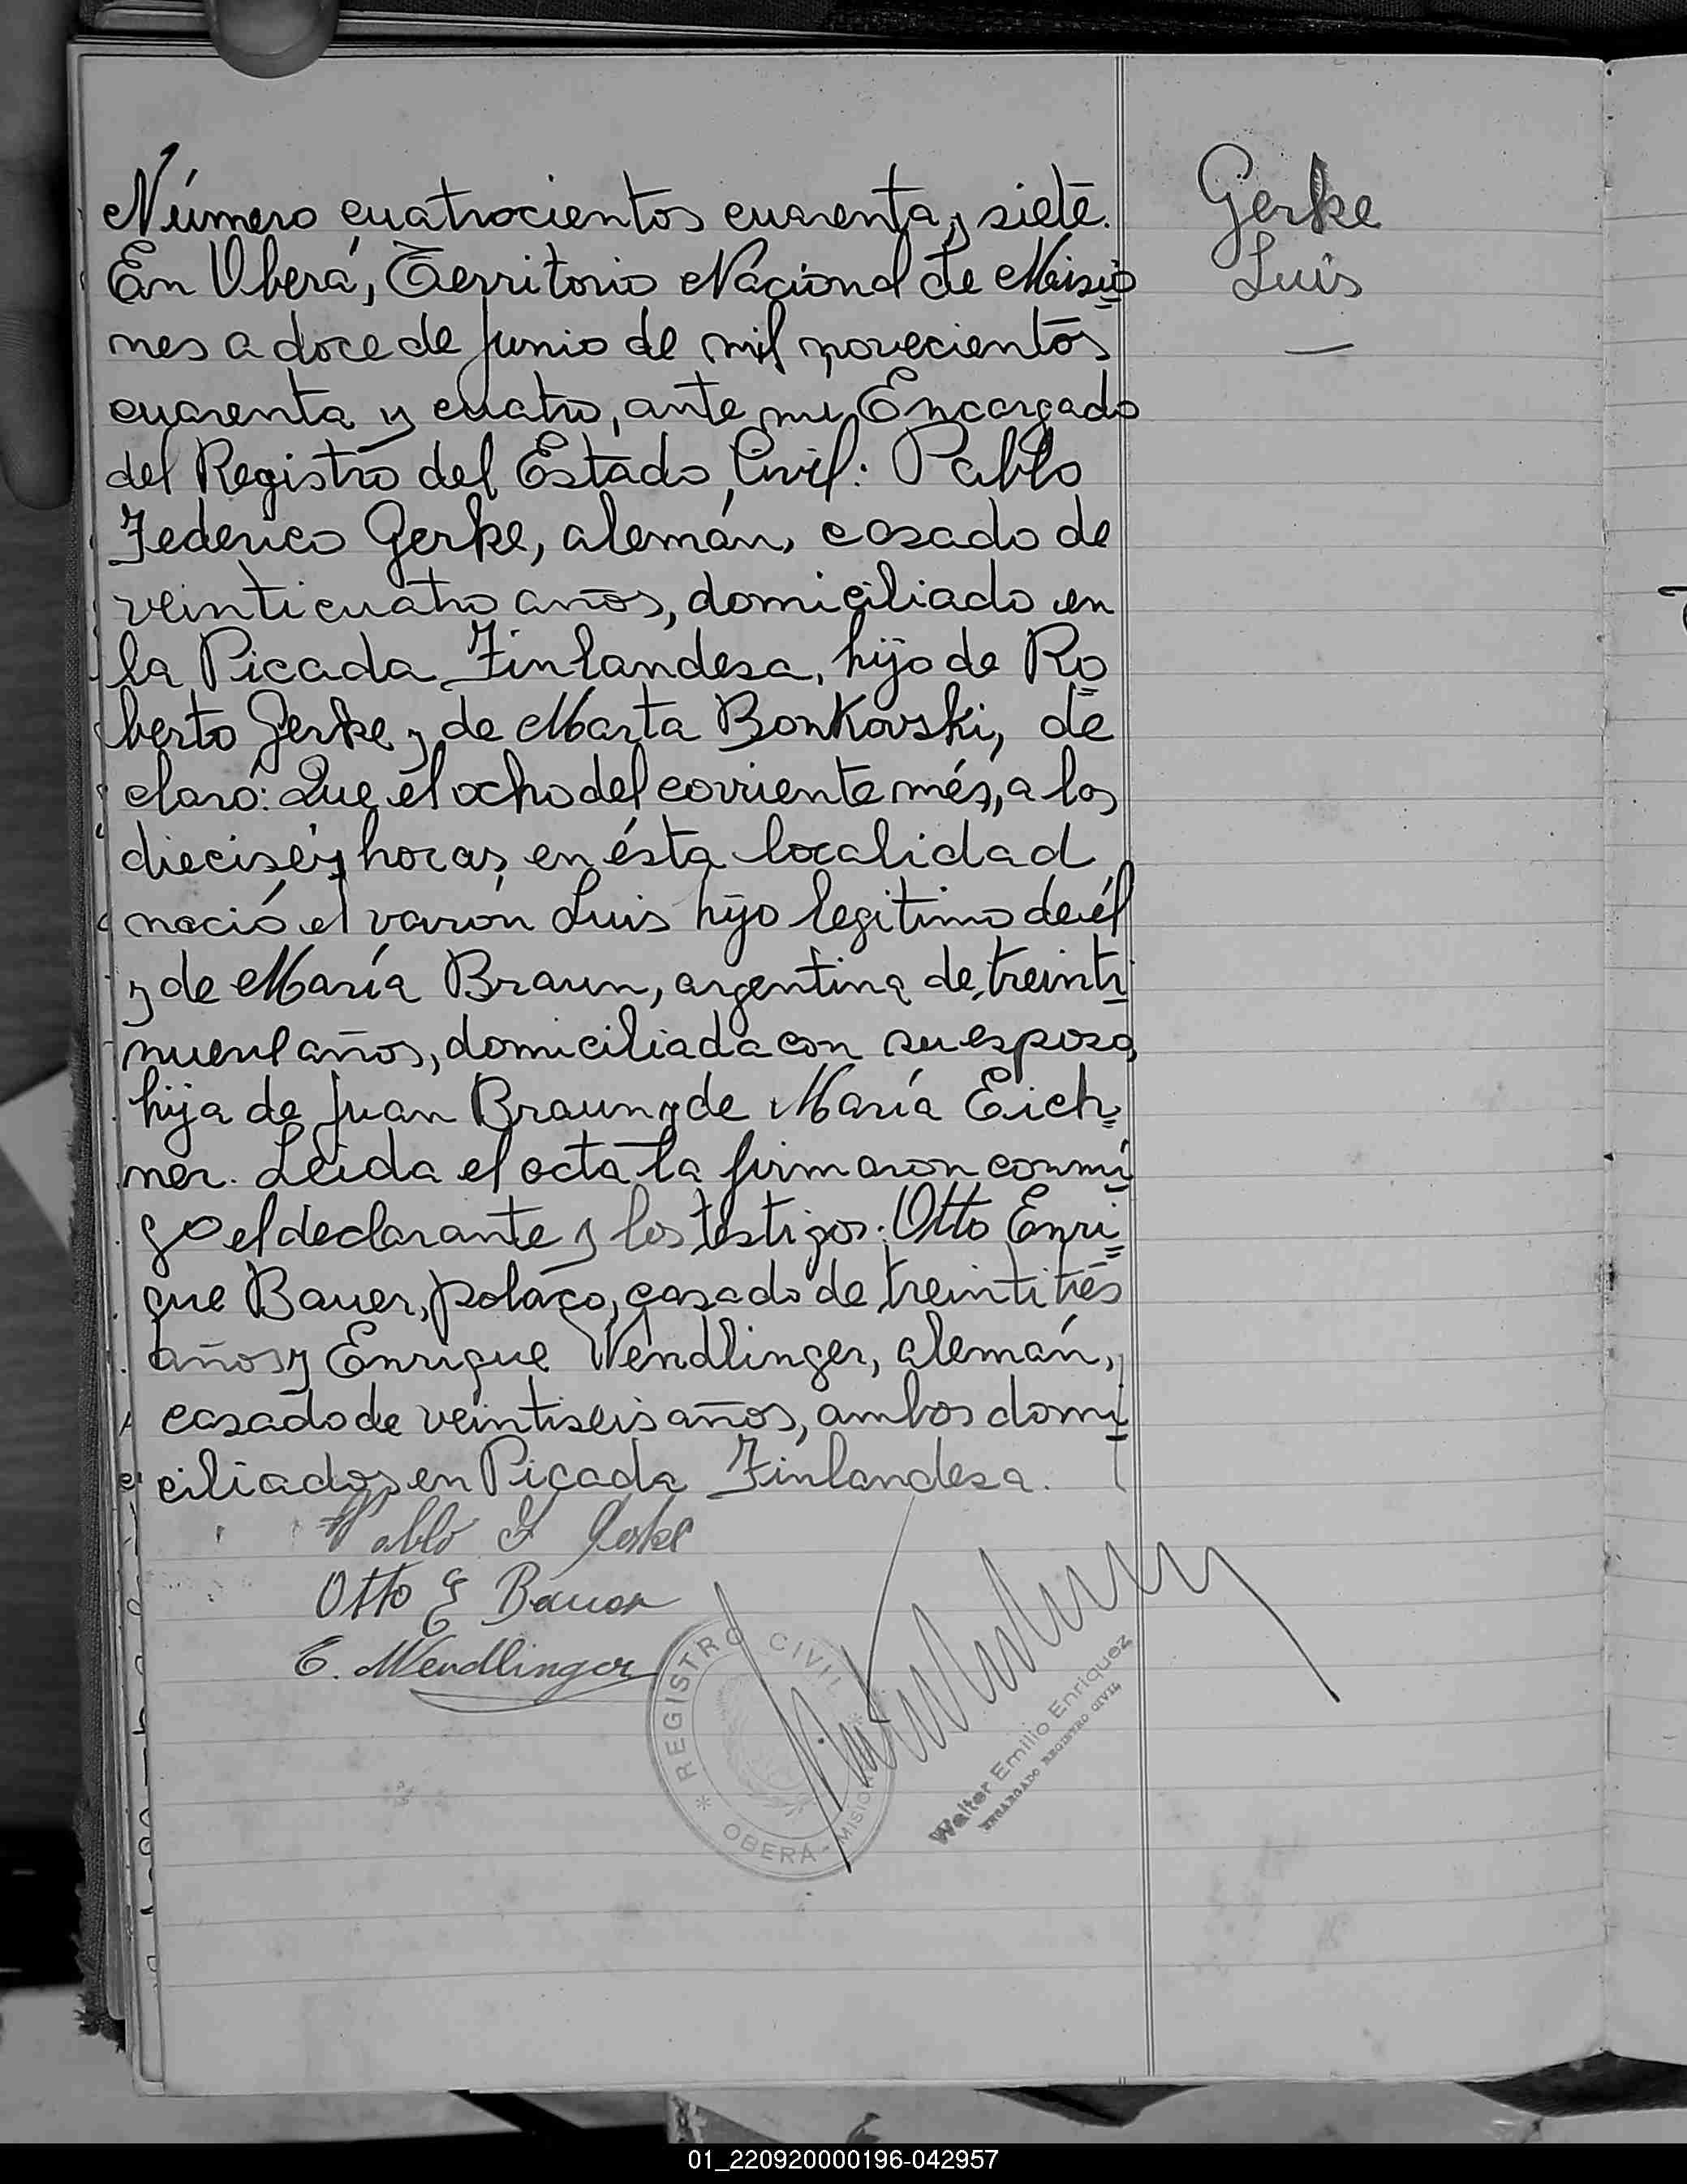 Número cuatrocientos cuarenta y siete.
En Oberá, Territorio Nacional de Misio
nes a doce de Junio de mil novecientos
cuarenta y cuatro, ante mi, Encargado
del Registro del Estado Civil: Pablo
Federico Gerke, alemán, casado de
veinticuatro años, domiciliado en
la Picada Finlandesa, hijo de Ro
berto Gerke y de Marta Bonkovski, de
claró: Que el ocho del corriente més, a las
dieciséis horas, en ésta localidad
nació el varón Luis hijo legitimo de él
y de María Braun, argentina de treinti
nueve años, domiciliada con su esposo,
hija de Juan Braun y de María Eich=
ner. Leida el acta la firmaron conmi
go el declarante y los testigos: Otto Enri
que Bauer, polaco, casado de treintitrés
años y Enrique Wendlinger, alemán,
casado de veintiseis años, ambos domi
ciliados en Picada Finlandesa.
Pablo F Gerke
Otto E Bauer
E. Wendlinger
REGISTRO CIVIL
* OBERÁ - MISIONES *
Walter Emilio Enriquez
ENCARGADO REGISTRO CIVIL
Gerke
Luis
01_220920000196-042957